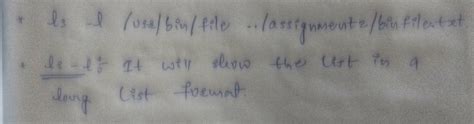 * ls -l /usr/bin/file ../assignment2/binfile.txt
* ls -l : It will show the list in a
long list format.